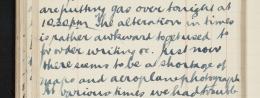 are putting gas over tonight at
10.30 pm. The alteration in times
is rather awkward to get used to
for writing &c. Just now
there seems to be a shortage of
maps and aeroplane photographs
At various times we had